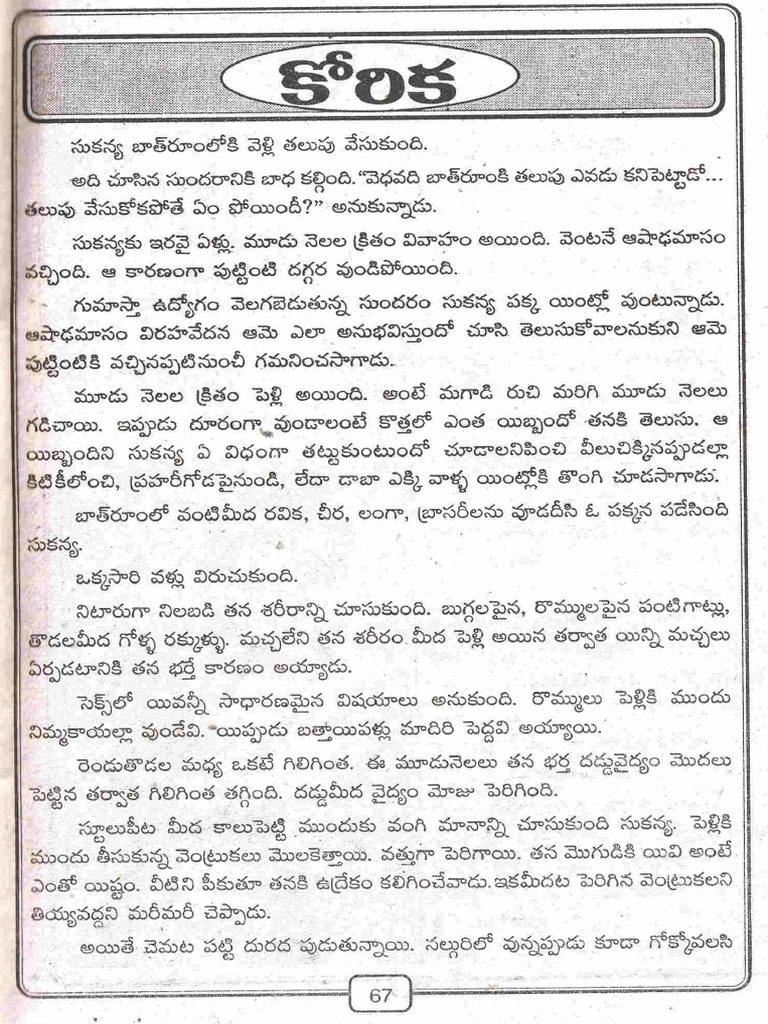 కోరిక
సుకన్య బాత్‌రూంలోకి వెళ్లి తలుపు వేసుకుంది.
అది చూసిన సుందరానికి బాధ కల్గింది. “వెధవది బాత్‌రూంకి తలుపు ఎవడు కనిపెట్టాడో...
తలుపు వేసుకోకపోతే ఏం పోయిందీ?” అనుకున్నాడు.
సుకన్యకు ఇరవై ఏళ్లు. మూడు నెలల క్రితం వివాహం అయింది. వెంటనే ఆషాఢమాసం
వచ్చింది. ఆ కారణంగా పుట్టింటి దగ్గర వుండిపోయింది.
గుమాస్తా ఉద్యోగం వెలగబెడుతున్న సుందరం సుకన్య పక్క యింట్లో వుంటున్నాడు.
ఆషాఢమాసం విరహవేదన ఆమె ఎలా అనుభవిస్తుందో చూసి తెలుసుకోవాలనుకుని ఆమె
పుట్టింటికి వచ్చినప్పటినుంచీ గమనించసాగాడు.
మూడు నెలల క్రితం పెళ్లి అయింది. అంటే మగాడి రుచి మరిగి మూడు నెలలు
గడిచాయి. ఇప్పుడు దూరంగా వుండాలంటే కొత్తలో ఎంత యిబ్బందో తనకి తెలుసు. ఆ
యిబ్బందిని సుకన్య ఏ విధంగా తట్టుకుంటుందో చూడాలనిపించి వీలుచిక్కినప్పుడల్లా
కిటికీలోంచి, ప్రహరీగోడపైనుండి, లేదా డాబా ఎక్కి వాళ్ళ యింట్లోకి తొంగి చూడసాగాడు.
బాత్‌రూంలో వంటిమీద రవిక, చీర, లంగా, బ్రాసరీలను వూడదీసి ఓ పక్కన పడేసింది
సుకన్య.
ఒక్కసారి వళ్లు విరుచుకుంది.
నిటారుగా నిలబడి తన శరీరాన్ని చూసుకుంది. బుగ్గలపైన, రొమ్ములపైన పంటిగాట్లు,
తొడలమీద గోళ్ళ రక్కుళ్ళు. మచ్చలేని తన శరీరం మీద పెళ్లి అయిన తర్వాత యిన్ని మచ్చలు
ఏర్పడటానికి తన భర్తే కారణం అయ్యాడు.
సెక్స్‌లో యివన్నీ సాధారణమైన విషయాలు అనుకుంది. రొమ్ములు పెళ్లికి ముందు
నిమ్మకాయల్లా వుండేవి. యిప్పుడు బత్తాయిపళ్లు మాదిరి పెద్దవి అయ్యాయి.
రెండుతొడల మధ్య ఒకటే గిలిగింత. ఈ మూడునెలలు తన భర్త దడ్డువైద్యం మొదలు
పెట్టిన తర్వాత గిలిగింత తగ్గింది. దడ్డుమీద వైద్యం మోజు పెరిగింది.
స్టూలుపీట మీద కాలుపెట్టి ముందుకు వంగి మానాన్ని చూసుకుంది సుకన్య. పెళ్లికి
ముందు తీసుకున్న వెంట్రుకలు మొలకెత్తాయి. వత్తుగా పెరిగాయి. తన మొగుడికి యివి అంటే
ఎంతో యిష్టం. వీటిని పీకుతూ తనకి ఉద్రేకం కలిగించేవాడు. ఇకమీదట పెరిగిన వెంట్రుకలని
తియ్యవద్దని మరీమరీ చెప్పాడు.
అయితే చెమట పట్టి దురద పుడుతున్నాయి. నల్గురిలో వున్నప్పుడు కూడా గోక్కోవలసి
67